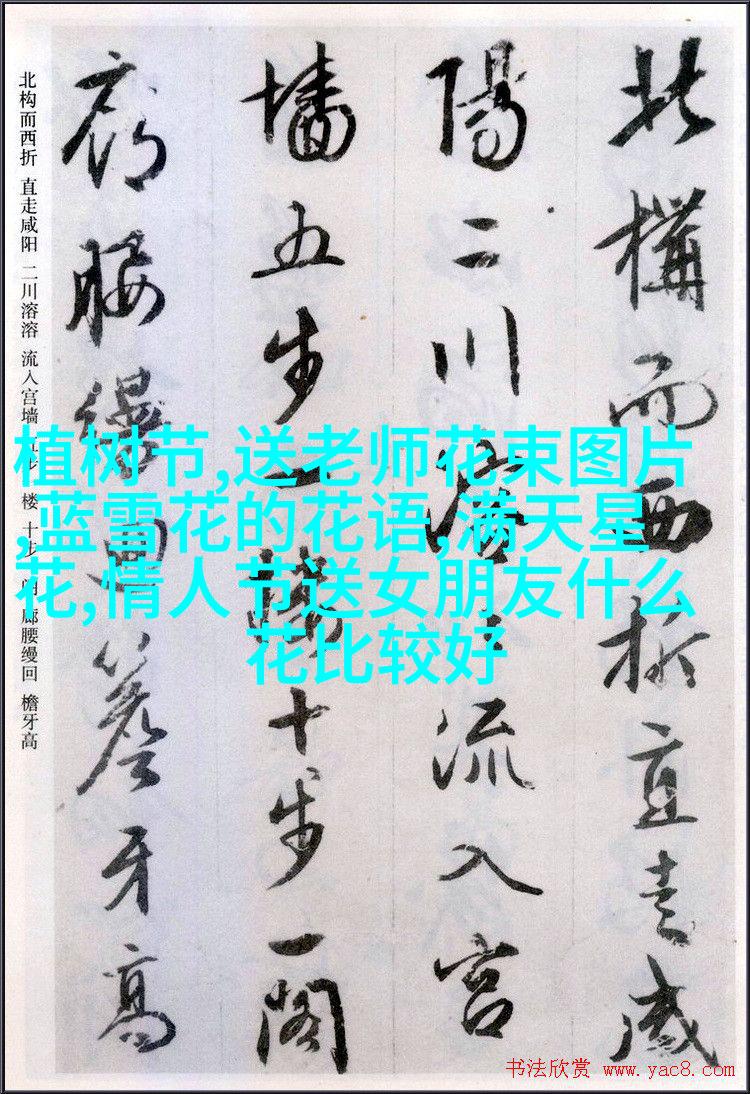 北構而西折直走咸
陽二川溶々流入宮
墻五步一樓十步一閣
廊腰縵回簷牙高
北构而西折 直走咸阳 二川溶溶 流入宫墙 五步 楼 十步 阁 廊腰缦回 檐牙高
植树节,送老师花束图片
,蓝雪花的花语,满天星
花,情人节送女朋友什么
花比较好
书法欣赏 www.yac8.com